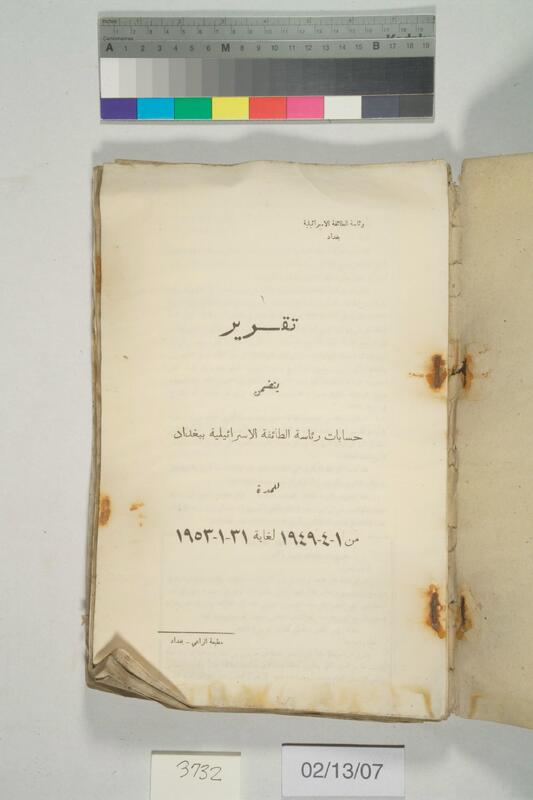 Inches
Centimetres
A 1 2 3 4 5 6 M 8 9 10 11 12 13 14 15 B 17 18 19
رئاسة الطائفة الاسرائيلية
بغداد
تقـــرير
يتضمن
حسابات رئاسة الطائفة الاسرائيلية ببغداد
للمدة
من ١-٤-١٩٤٩ لغاية ٣١-١-١٩٥٣
مطبعة الراعي - بغداد
3732
02/13/07